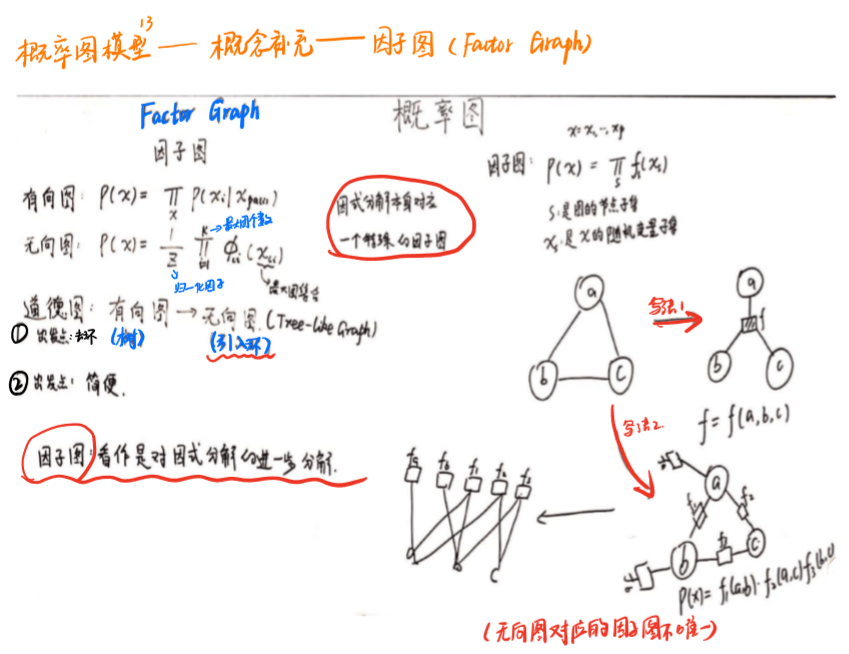 概率图模型13 — 概念补充 — 因子图 (Factor Graph)
Factor Graph
概率图
因子图
有向图: P(x) = ∏ P(xi | xpa(i))
x
无向图: P(x) = 1/Z ∏ φci (xci)
K → 最大团个数
i=1
归一化因子
最大团集合
道德图: 有向图 → 无向图. (Tree-like Graph)
① 出发点: 去环 (树) (引入环)
② 出发点: 简便.
因子图: 看作是对因式分解的进一步分解.
因式分解本身对应
一个特殊的因子图
x = x1, ..., xp
因子图: P(x) = ∏ fs(xs)
S
S: 是图的节点子集
xs: 是 x 的随机变量子集
a
b
c
写法1
a
f
b
c
f = f(a,b,c)
写法2
a
f1
f2
b
f3
c
P(x) = f1(a,b)·f2(a,c)f3(b,c)
f1 f2 f3
a
c
(无向图对应的因子图不唯一)